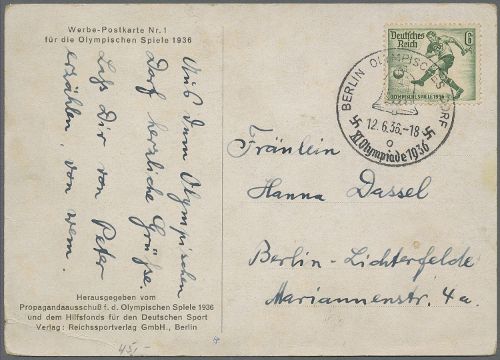 Werbe-Postkarte Nr. 1
für die Olympischen Spiele 1936
Aus dem Olympischen
Dorf herzliche Grüße.
Laß Dir von Peter
erzählen, von wem.
Herausgegeben vom
Propagandaausschuß f. d. Olympischen Spiele 1936
und dem Hilfsfonds für den Deutschen Sport
Verlag: Reichssportverlag GmbH., Berlin
45,-
Deutsches
Reich
6
OLYMPISCHE SPIELE 1936
BERLIN OLYMPISCHES DORF
12.6.36.-18
XI. Olympiade 1936
Fräulein
Hanna Dassel
Berlin-Lichterfelde
Mariannenstr. 4a.